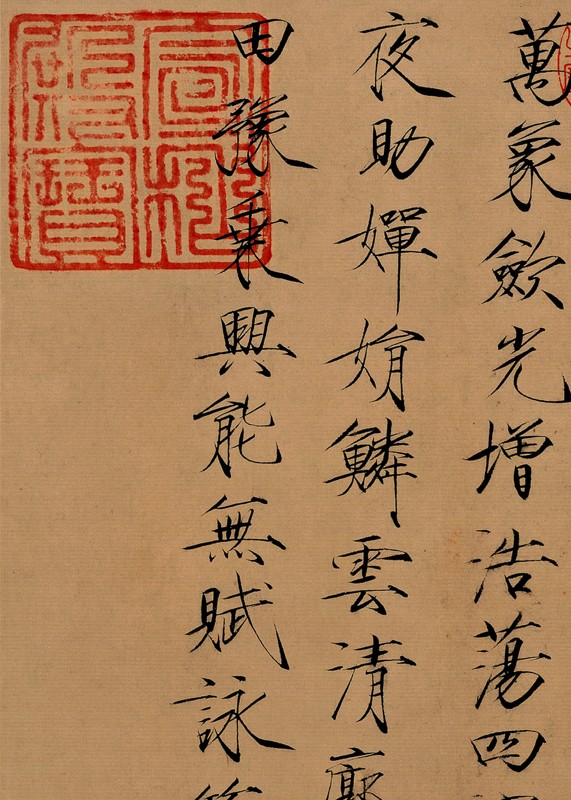 萬象歛光增浩蕩四
夜助嬋娟鱗雲清
田豫乘興能無賦詠